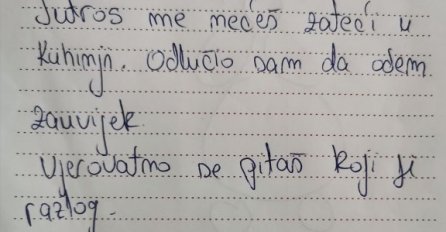 Jutros me nećeš zateći u
kuhinji. Odlučio sam da odem
zauvijek
Vjerovatno se pitaš koji je
razlog.